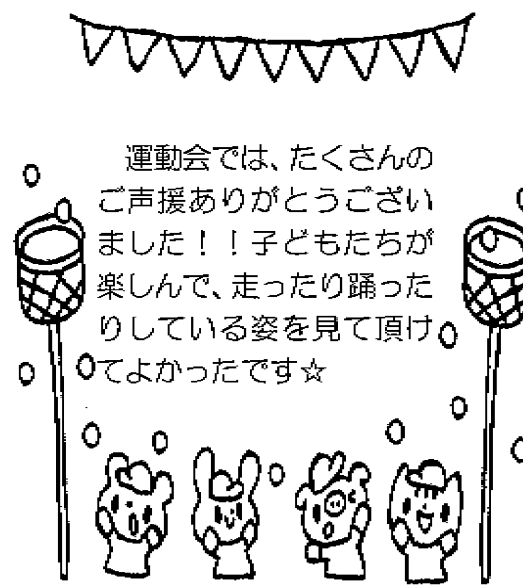 運動会では、たくさんの
ご声援ありがとうござい
ました！！子どもたちが
楽しんで、走ったり踊った
りしている姿を見て頂け
てよかったです☆